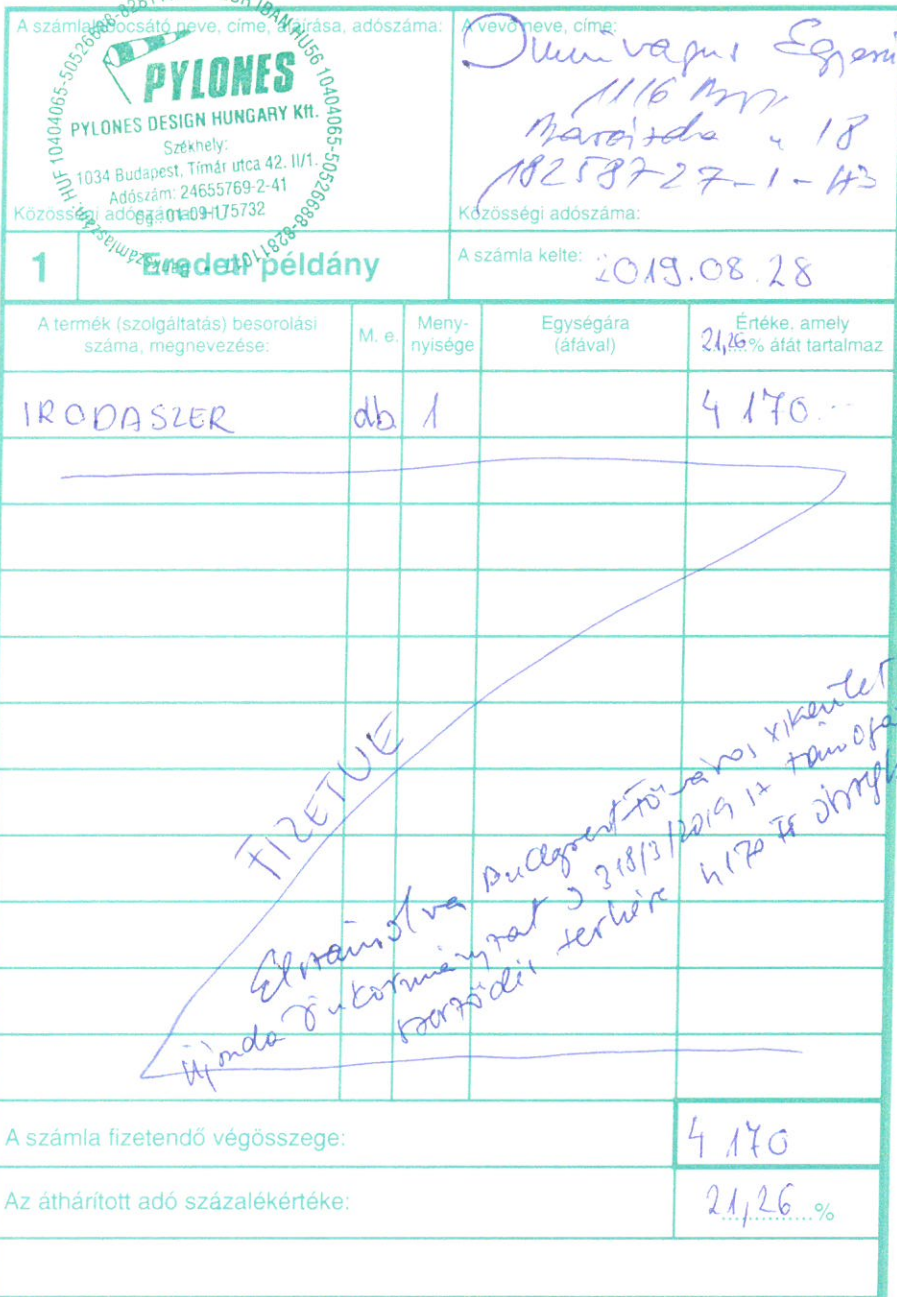 A számlakibocsátó neve, címe, aláírása, adószáma:
PYLONES
PYLONES DESIGN HUNGARY Kft.
Székhely:
1034 Budapest, Tímár utca 42. II/1.
Adószám: 24655769-2-41
Cg.: 01-09-175732
Közösségi adószáma:
A vevő neve, címe:
Egyesü
1116 Bp
18
18258727-1-43
Közösségi adószáma:
1
Eredeti példány
A számla kelte: 2019.08.28
A termék (szolgáltatás) besorolási száma, megnevezése:
M. e.
Meny-
nyisége
Egységára
(áfával)
Értéke, amely
21,26 % áfát tartalmaz
IRODASZER db. 1 4 170
FIZETVE
Elszámolva Budapest Főváros XI kerület
Újbuda Önkormányzat 318/3/2019
szerződés terhére 4170 Ft
A számla fizetendő végösszege: 4 170
Az áthárított adó százalékértéke: 21,26 %